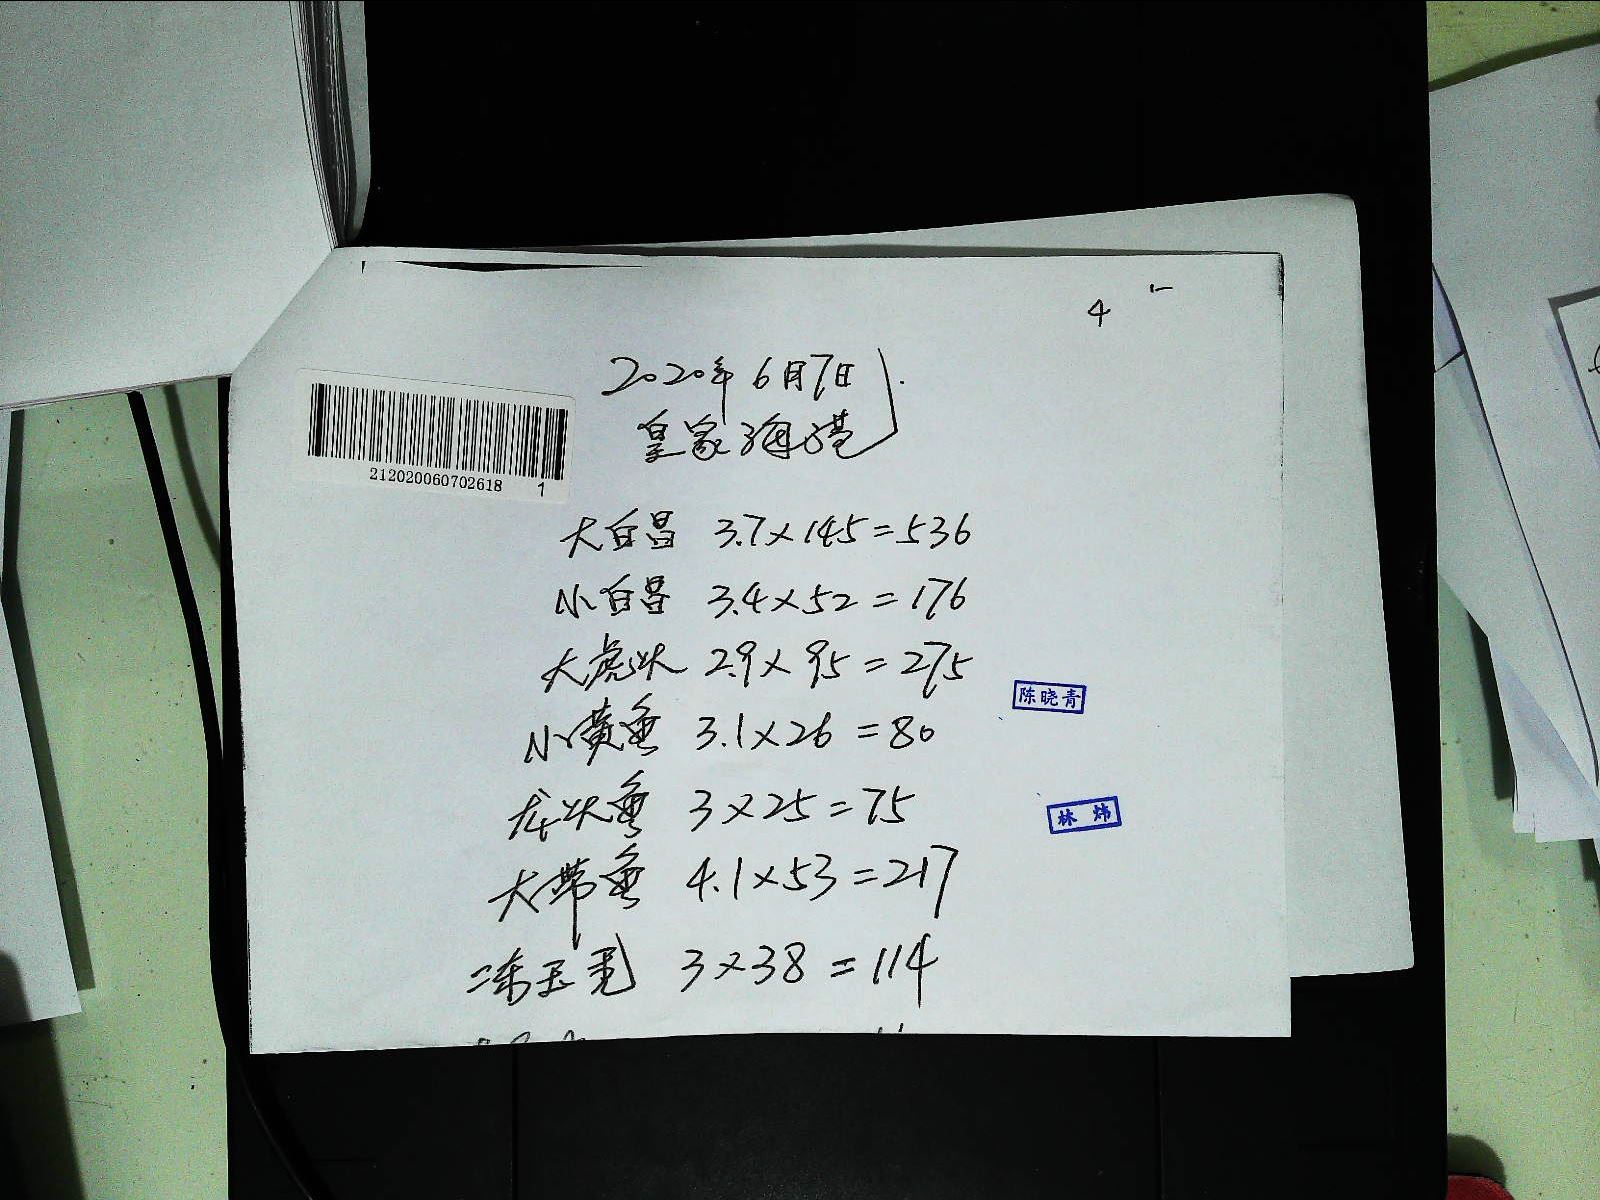 4
2020年6月7日
皇家海港
212020060702618
1
大白昌 3.7×145=536
小白昌 3.4×52=176
大虎头 2.9×95=275
陈晓青
小黄鱼 3.1×26=80
龙头鱼 3×25=75
林炜
大带鱼 4.1×53=217
冻玉秃 3×38=114